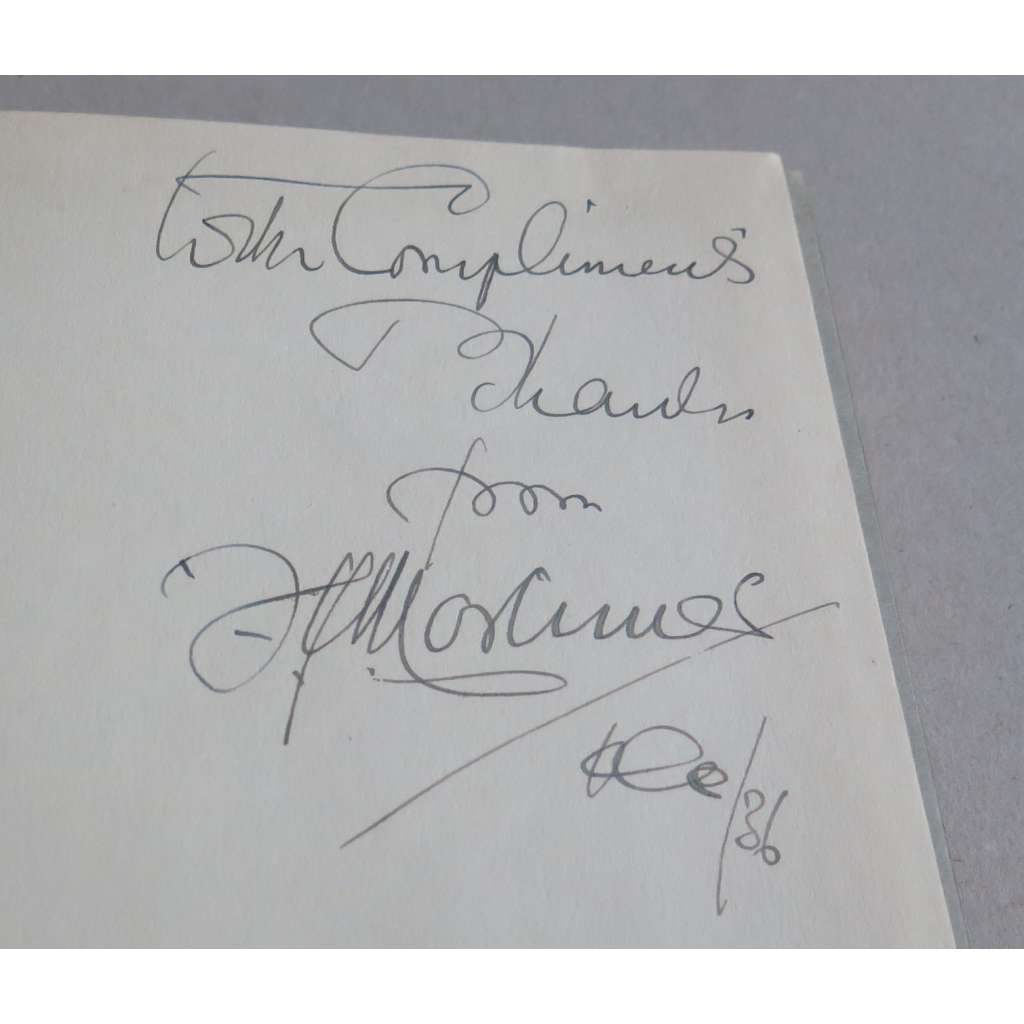 With Compliments
& Thanks
from
F J Mortimer
Dec/36